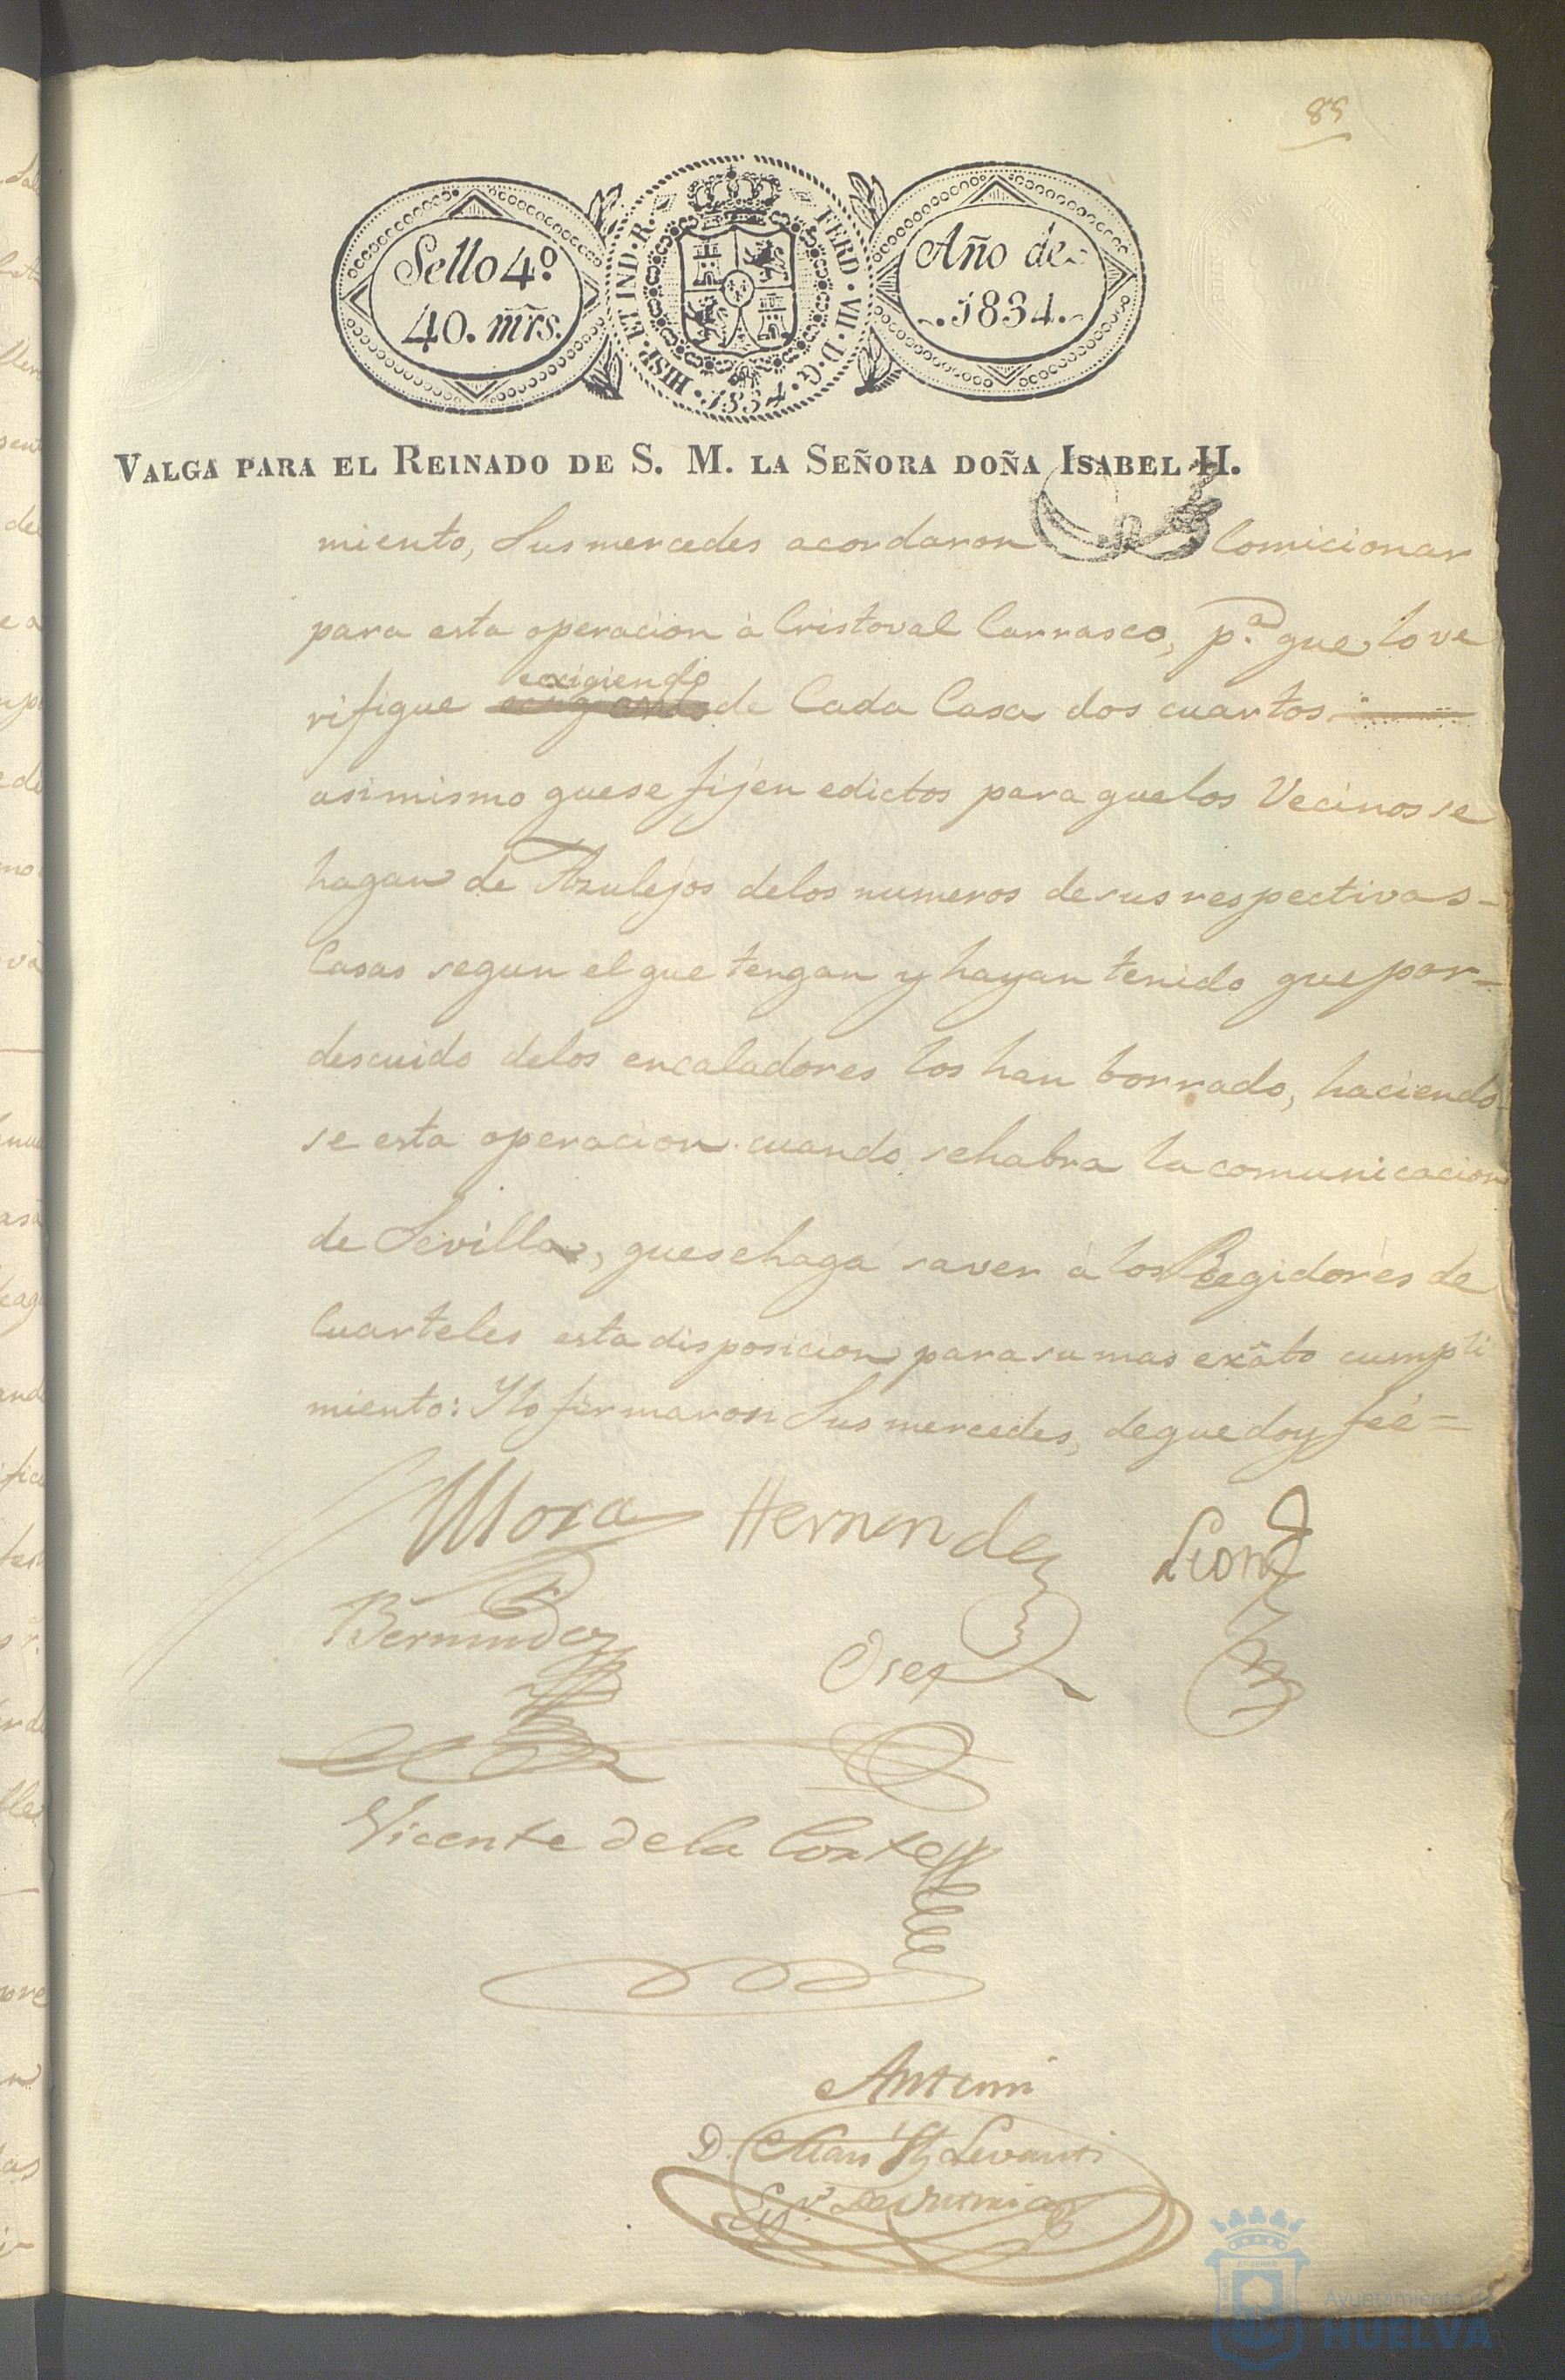 85
Sello 4º
40. mrs.
HISP. ET IND. R.
FERD. VII. D. G.
1834
Año de
1834.
VALGA PARA EL REINADO DE S. M. LA SEÑORA DOÑA ISABEL II.
miento, Sus mercedes acordaron Comicionar
para esta operacion à Cristoval Carrasco, p.ª que lo ve
exigiendo
rifique de Cada Casa dos cuartos
asimismo que se fijen edictos para que los Vecinos se
hagan de Azulejos delos numeros de sus respectivas
Casas segun el que tengan y hayan tenido que por
descuido delos encaladores los han borrado, haciendo
se esta operacion cuando sehabra la comunicacion
de Sevilla, que se haga saver à los Regidores de
Cuarteles esta disposicion para su mas exãto cumpli
miento: Ylo firmaron Sus mercedes, de que doy feé=
Mora Hernandez Leon
Bermudez
Vicente de la Corte
Antemi
D.
AYUNTAMIENTO DE
HUELVA